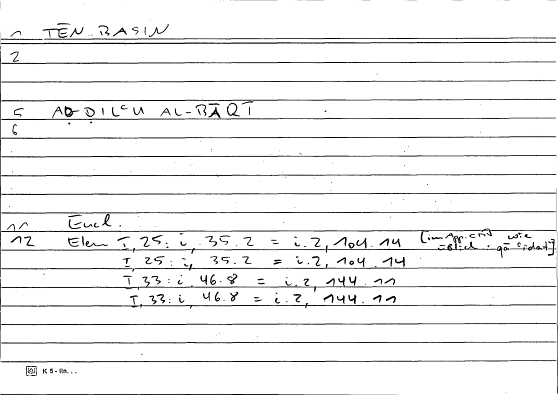 1 TĒN.BASIN
2
5 AḌ-ḌILʿU AL-BĀQĪ
6
11 Eucl.
12 Elem I, 25: i, 35.2 = i.2, 104.14 [im App. crit wie üblich: qāʿidat]
I, 25: i, 35.2 = i.2, 104.14
I, 33: i, 46.8 = i.2, 144.11
I, 33: i, 46.8 = i.2, 144.11
K 5 - lin. . .